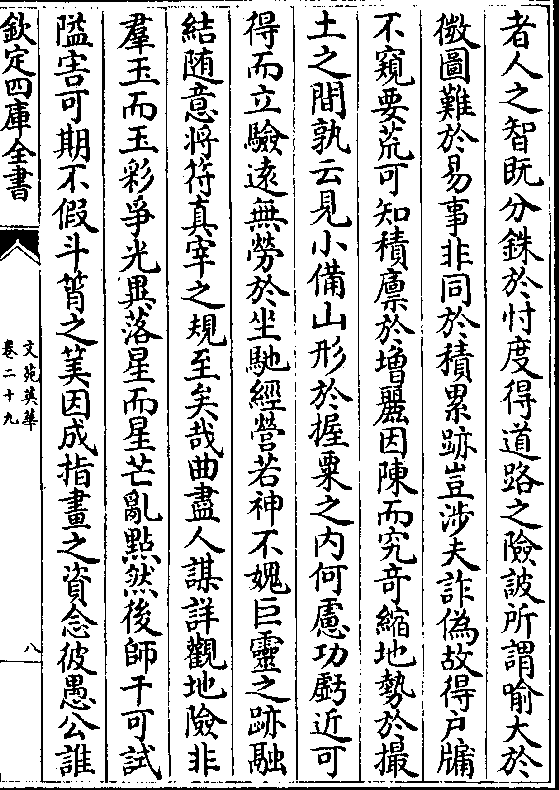 者人之智既分銖於忖度得道路之險詖所謂喻大於
微圖難於易事非同於積累跡豈涉夫詐偽故得戸牖
不窺要荒可知積廪於增麗因陳而究奇縮地勢於撮
土之間孰云見小備山形於握粟之内何慮功虧近可
得而立驗逺無勞於坐馳經營若神不媿巨靈之跡融
結随意将符真宰之規至矣哉曲盡人謀詳觀地險非
羣玉而玉彩爭光異落星而星芒亂點然後師干可試
隘害可期不假斗筲之筭因成指畫之資念彼愚公誰
欽定四庫全書
文苑英華
卷二十九
八